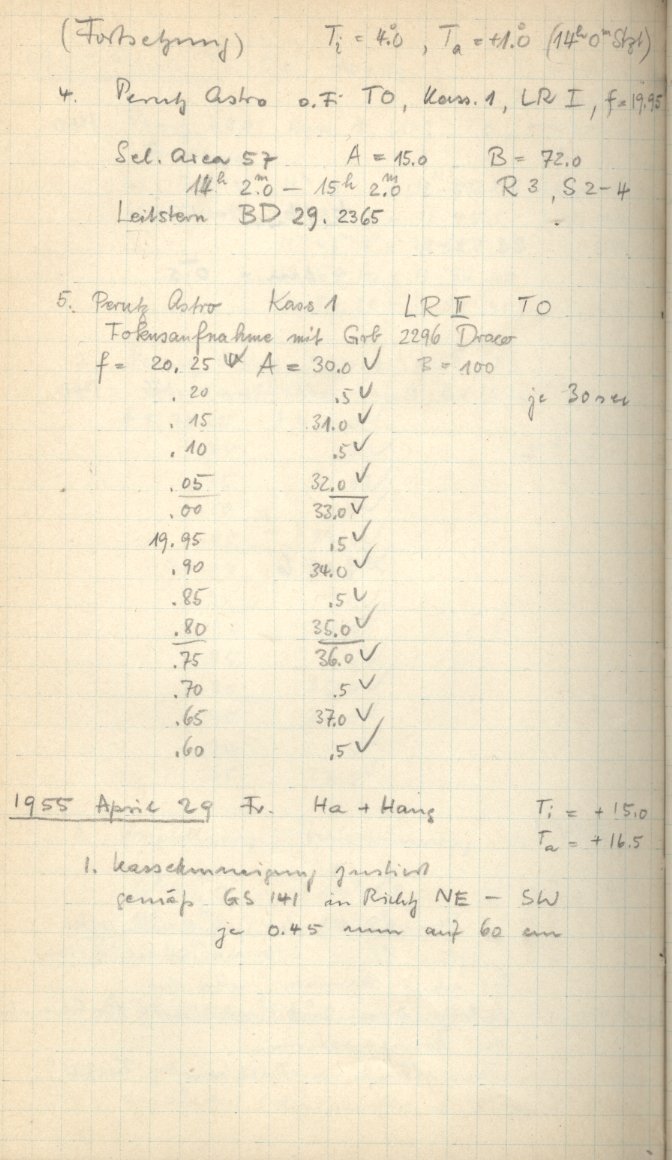 (Fortsetzung) Ti = 4.°0 , Ta = +1.°0 (14h 0m Stzt)
4. Perutz Astro o.F. TO, Kass. 1, LR I, f = 19.95
Sel. Area 57 A = 15.0 B = 72.0
14h 2m.0 – 15h 2m.0 R 3, S 2-4
Leitstern BD 29.2365
5. Perutz Astro Kass 1 LR II TO
Fokusaufnahme mit Grb 2296 Draco
f = 20.25 A = 30.0 ✓ B = 100
.20 .5 ✓ je 30 sec
.15 31.0 ✓
.10 .5 ✓
.05 32.0 ✓
.00 33.0 ✓
19.95 .5 ✓
.90 34.0 ✓
.85 .5 ✓
.80 35.0 ✓
.75 36.0 ✓
.70 .5 ✓
.65 37.0 ✓
.60 .5 ✓
1955 April 29 Fr. Ha + Haug Ti = +15.0
Ta = +16.5
1. Kassettenneigung justiert
gemäß GS 141 in Richtg NE – SW
je 0.45 mm auf 60 cm